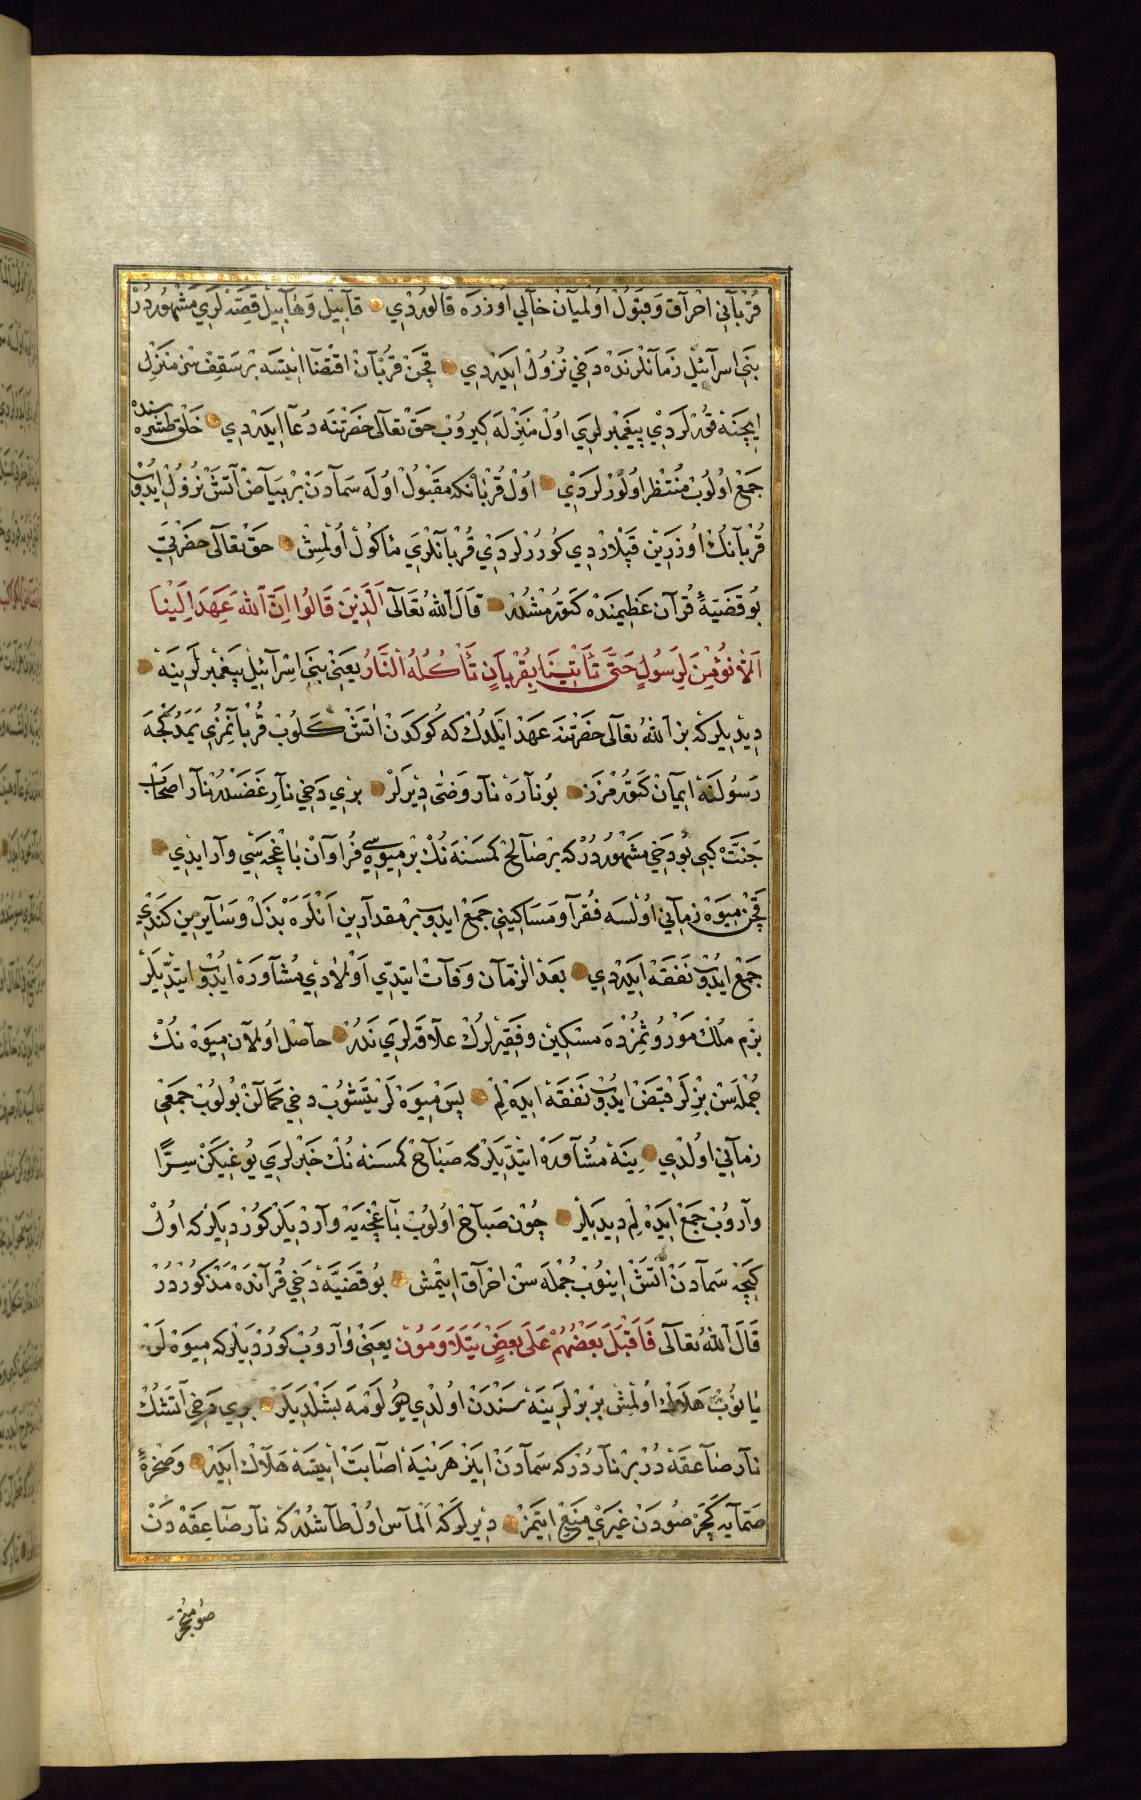 قُرْبَانِي احْرَاق وَقَبُولْ اُولْمَيَانْ خَالِي اُوزَرَه قَالُورْدِي قَابِيلْ وَهَابِيلْ قِصَّه لَرِي مَشْهُورْدُرْ
بَنِي اسْرَائِيلْ زَمَانْلَرِنْدَه دَخِي نُزُولْ اِيدَرْدِي قَچَنْ قُرْبَانْ اقْتِضَا اِيتْسَه بِرْ سَقِفْ سِزْ مَنْزِلْ
اِيچِنَه قُورْلَرْدِي پِيغَمْبَرْلَرِي اُولْ مَنْزِلَه كِيرُوبْ حَقْ تَعَالَى حَضْرَتِنَه دُعَا اِيدَرْدِي خَلْقْ طَشْرَه سِنْدَه
جَمْعْ اُولُوبْ مُنْتَظِرْ اُولُورْلَرْدِي اُولْ قُرْبَانْكِه مَقْبُولْ اُولَه سَمَادَنْ بِرْ بَيَاضْ آتَشْ نُزُولْ اِيدُوبْ
قُرْبَانُكْ اُوزَرِينْ قَپْلَارْدِي كُورُرْلَرْدِي قُرْبَانْلَرِي مَاكُولْ اُولْمِشْ حَقْ تَعَالَى حَضْرَتِي
بُو قَضِيَّةِ قُرْآنِ عَظِيمِنْدَه كَتُورْمُشْدُرْ قَالَ اللّٰهُ تَعَالَى اَلَّذِينَ قَالُوا اِنَّ اللّٰهَ عَهِدَ اِلَيْنَا
اَلَّا نُؤْمِنَ لِرَسُولٍ حَتَّى تَأْتِيَنَا بِقُرْبَانٍ تَأْكُلُهُ النَّارُ يَعْنِي بَنِي اِسْرَائِيلْ پِيغَمْبَرْلَرِينَه
دِيدِيلَرْكِه بِزْ اَللّٰهُ تَعَالَى حَضْرَتِنَه عَهْدْ اَيْلَدُكْ كِه كُوكْدَنْ آتَشْ كَلُوبْ قُرْبَانِمُزِي يَمَدُكْجَه
رَسُولَنَه اِيمَانْ كَتُورْمَزُزْ بُو نَارَه نَارِ وَضَى دِيرَلَرْ بِرِي دَخِي نَارِ غَضَبْدُرْ نَارِ اصْحَابِ
جَنَّتْ كَبِي بُو دَخِي مَشْهُورْدُرْكِه بِرْ صَالِحْ كِمْسَنَه نُكْ بِرْ مِيوَه سِي فُرَاوَانْ بَاغْچَه سِي وَارْ اِيدِي
قَچَنْ مِيوَه زَمَانِي اُولْسَه فُقَرَا وَمَسَاكِينِي جَمْعْ اِيدُوبْ بِرْ مِقْدَارِينْ اَنْلَرَه بَذْلْ وَسَايِرِينْ كَنْدِي
جَمْعْ اِيدُوبْ نَفَقَه اِيدَرْدِي بَعْدَ الزَّمَانْ وَفَاتْ اِيتْدِي اَوْلَادِي مُشَاوَرَه اِيدُوبْ اِيتْدِيلَرْ
بِزِمْ مُلْكِ مَوْرُوثِمُزْدَه مِسْكِينْ وَفَقِيرْلَرُكْ عَلَاقَه لَرِي نَدُرْ حَاصِلْ اُولَانْ مِيوَه نُكْ
جُمْلَه سِنْ بِزْلَرْ قَبْضْ اِيدُوبْ نَفَقَه اِيدَه لِمْ پَسْ مِيوَه لَرْ يَتِشُوبْ دَخِي كَمَالِنْ بُولُوبْ جَمْعِي
زَمَانِي اُولْدِي يِنَه مُشَاوَرَه اِيتْدِيلَرْكِه صَبَاحْ كِمْسَنَه نُكْ خَبَرْلَرِي يُوغِيكَنْ سِرًّا
وَارُوبْ جَمْعْ اِيدَه لِمْ دِيدِيلَرْ چُونْ صَبَاحْ اُولُوبْ بَاغْچَه يَه وَارْدِيلَرْ كُورْدِيلَرْكِه اُولْ
كِيجَه سَمَادَنْ آتَشْ اِينُوبْ جُمْلَه سِنْ احْرَاقْ اِيتْمِشْ بُو قَضِيَّه دَخِي قُرْآنْدَه مَذْكُورْدُرْ
قَالَ اللّٰهُ تَعَالَى فَاَقْبَلَ بَعْضُهُمْ عَلَى بَعْضٍ يَتَلَاوَمُونَ يَعْنِي وَارُوبْ كُورْدِيلَرْكِه مِيوَه لَرْ
يَانُوبْ هَلَاكْ اُولْمِشْ بِرْ بِرْلَرِينَه سَنْدَنْ اُولْدِي دِيُو لَوْمَه بَشْلَدِيلَرْ بِرِي دَخِي آتَشُكْ
نَارِ صَاعِقَه دُرْ بِرْ نَارْدُرْكِه سَمَادَنْ اِينَرْ هَرْ نَيَه اِصَابَتْ اِيتْسَه هَلَاكْ اِيدَرْ وَصَخْرَهٔ
صَمَّايَه كَچَرْ صُودَنْ غَيْرِي مَنْعْ اِيتْمَزْ دِيرْلَرْكِه اَلْمَاسْ اُولْ طَاشْدُرْكِه نَارِ صَاعِقَه دَنْ